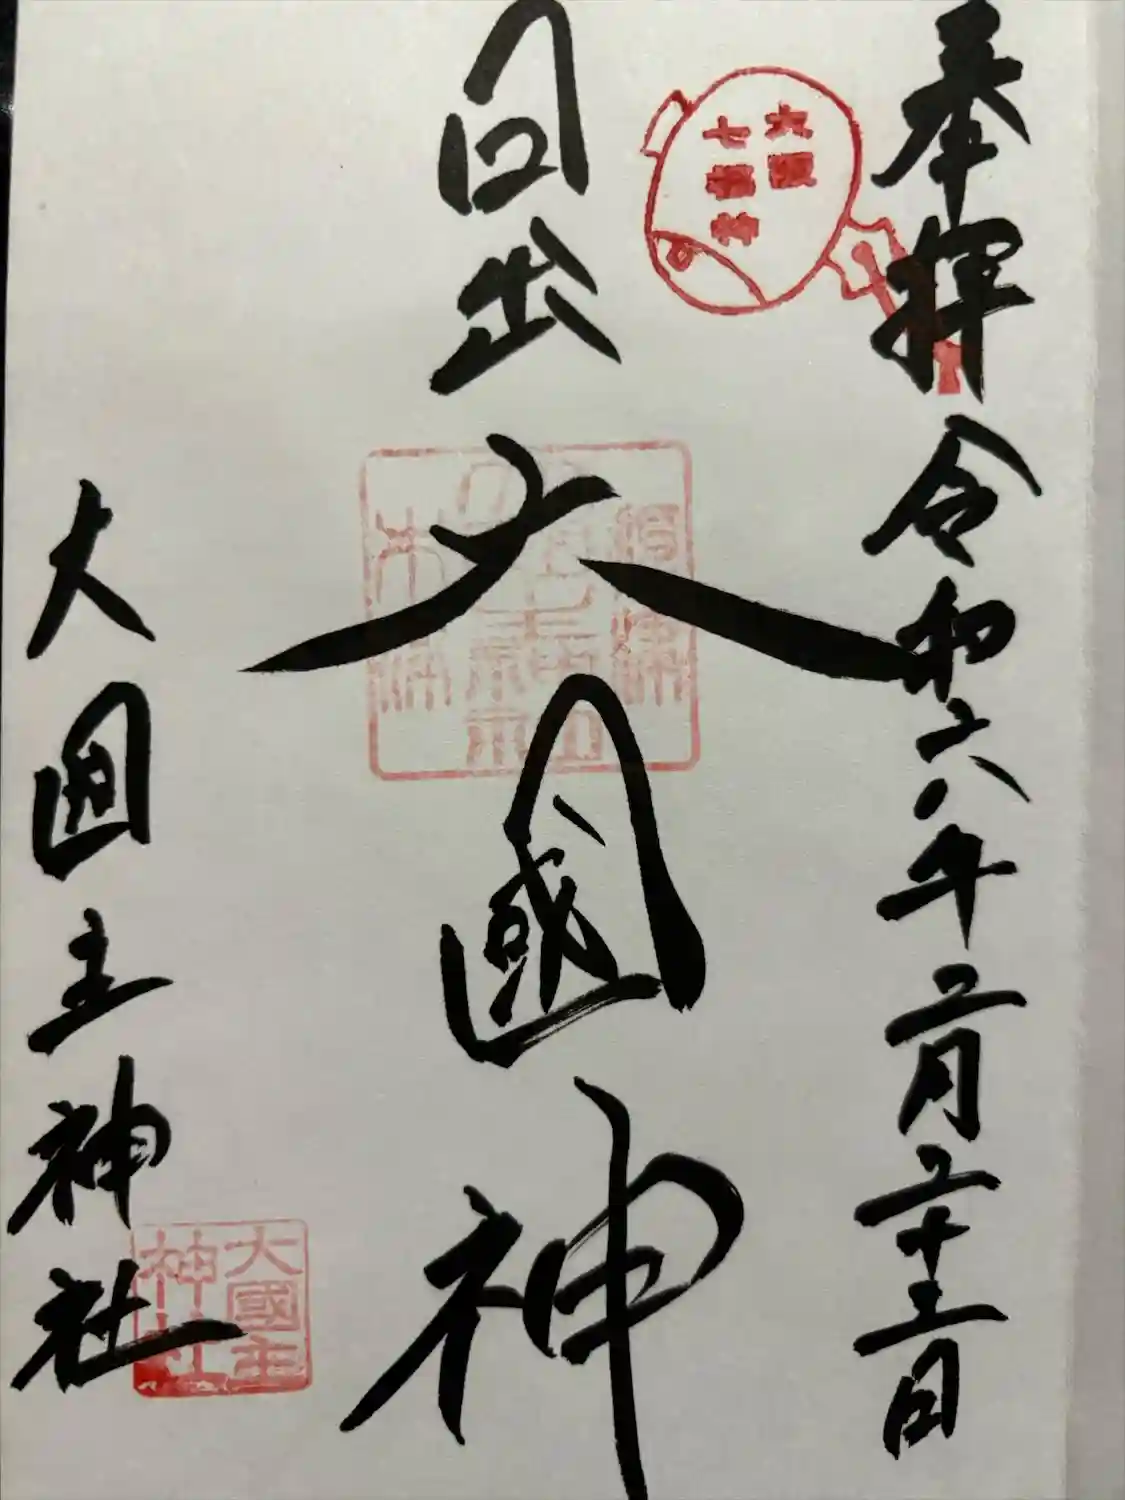 奉拝 令和六年二月二十三日
大阪
七福神
日出大國神
大国主神社
大國主
神社